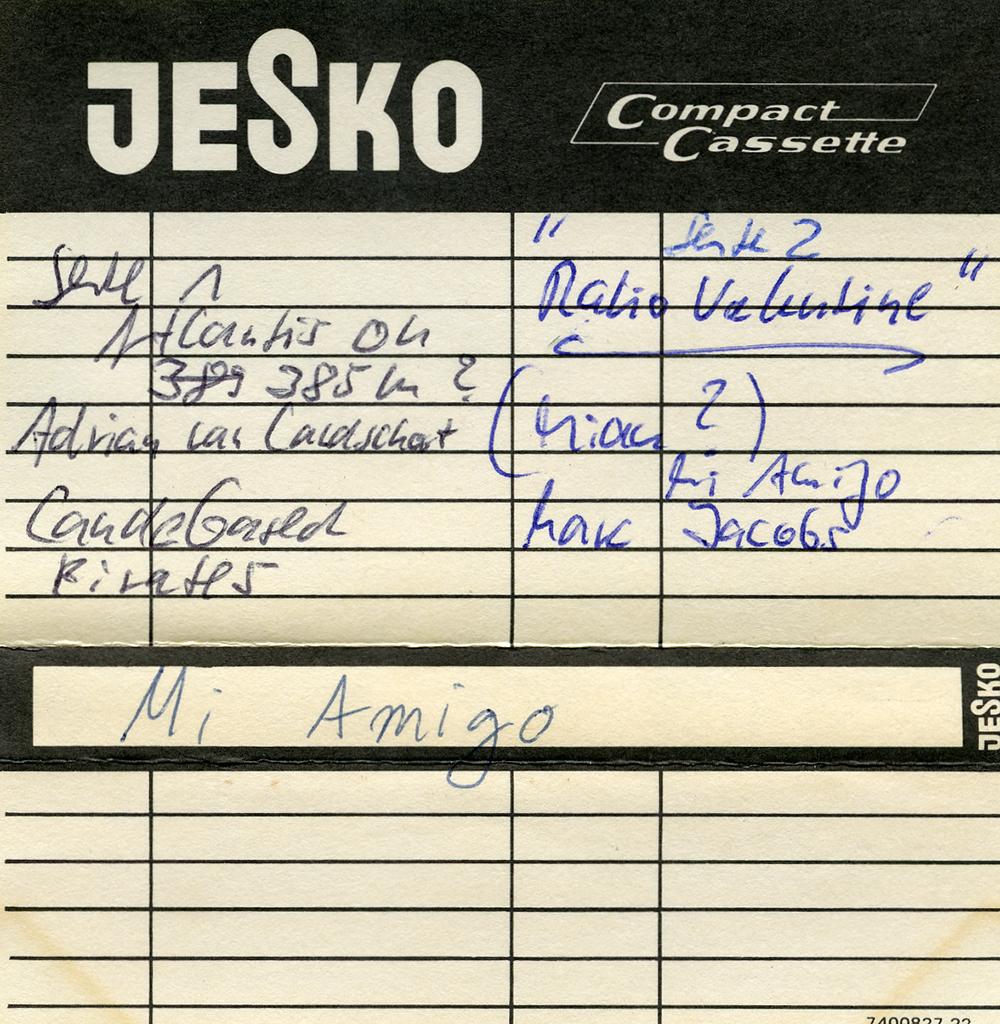 JESKO
Compact
Cassette
Seite 1
Atlantis on
389 385 m ?
Adrian van Landschot
Landgased
Pirates
" Seite 2
Radio Valentine "
( ? )
Mi Amigo
Marc Jacobs
Mi Amigo
JESKO
7400827 22